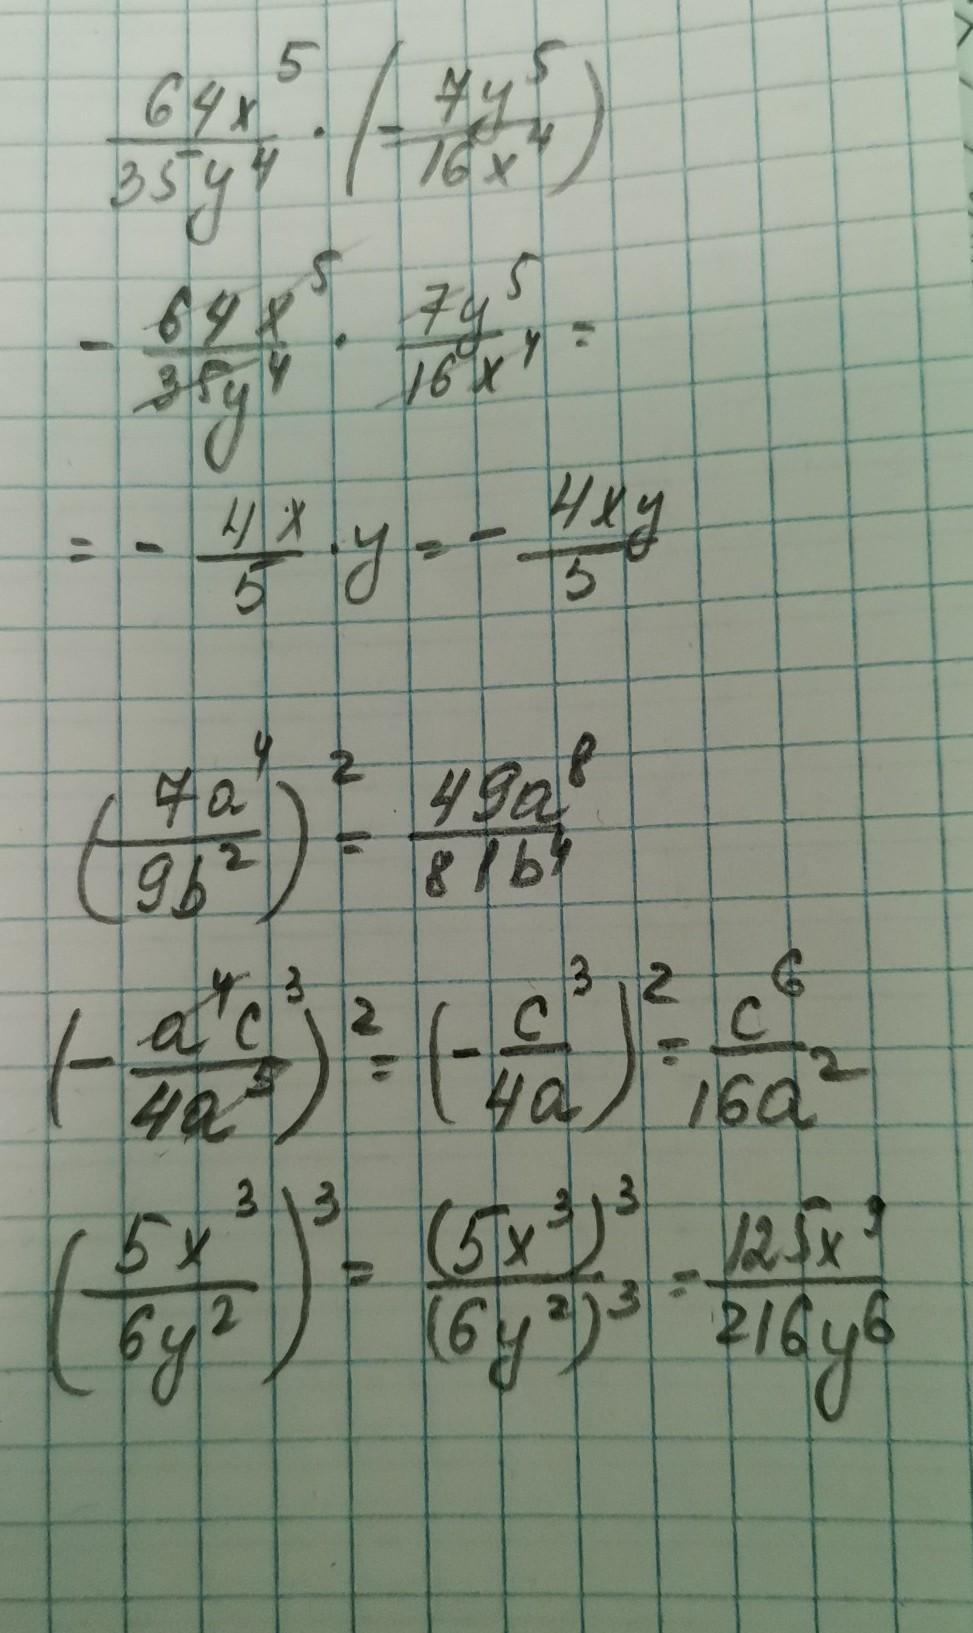 64x⁵/35y⁴ · (-7y⁵/16x⁴)
- 64x⁵/35y⁴ · 7y⁵/16x⁴ =
= - 4x/5 · y = - 4xy/5
(7a⁴/9b²)² = 49a⁸/81b⁴
(- a⁴c³/4a⁵)² = (- c³/4a)² = c⁶/16a²
(5x³/6y²)³ = (5x³)³/(6y²)³ = 125x⁹/216y⁶